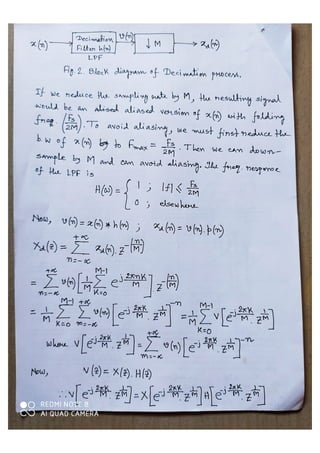 x(n) → Decimation Filter h(n) → v(n) → ↓M → x_d(n)
LPF
Fig. 2. Block diagram of Decimation process.
If we reduce the sampling rate by M, the resulting signal
would be an alised aliased version of x(n) with folding
freq. (Fs/2M). To avoid aliasing, we must first reduce the
b.w of x(n) by to Fmax = Fs/2M. Then we can down-
sample by M and can avoid aliasing. The freq. response
of the LPF is
H(ω) = { 1 ; |f| ≤ Fs/2M
0 ; elsewhere
Now, v(n) = x(n) * h(n) ; x_d(n) = v(n). p(n)
X_d(z) = Σ_{n=-∞}^{+∞} x_d(n). z^{-(n/M)}
= Σ_{n=-∞}^{+∞} v(n) [1/M Σ_{k=0}^{M-1} e^{j 2πnk/M}] z^{-(n/M)}
= 1/M Σ_{k=0}^{M-1} Σ_{m=-∞}^{+∞} v(n) [e^{-j 2πk/M}. z^{1/M}]^{-n} = 1/M Σ_{k=0}^{M-1} V[e^{-j 2πk/M}. z^{1/M}]
where V[e^{-j 2πk/M}. z^{1/M}] = Σ_{m=-∞}^{+∞} v(n) [e^{-j 2πk/M}. z^{1/M}]^{-n}
Now, V(z) = X(z). H(z)
∴ V[e^{-j 2πk/M}. z^{1/M}] = X[e^{-j 2πk/M}. z^{1/M}] H[e^{-j 2πk/M}. z^{1/M}]
REDMI NOTE 8
AI QUAD CAMERA